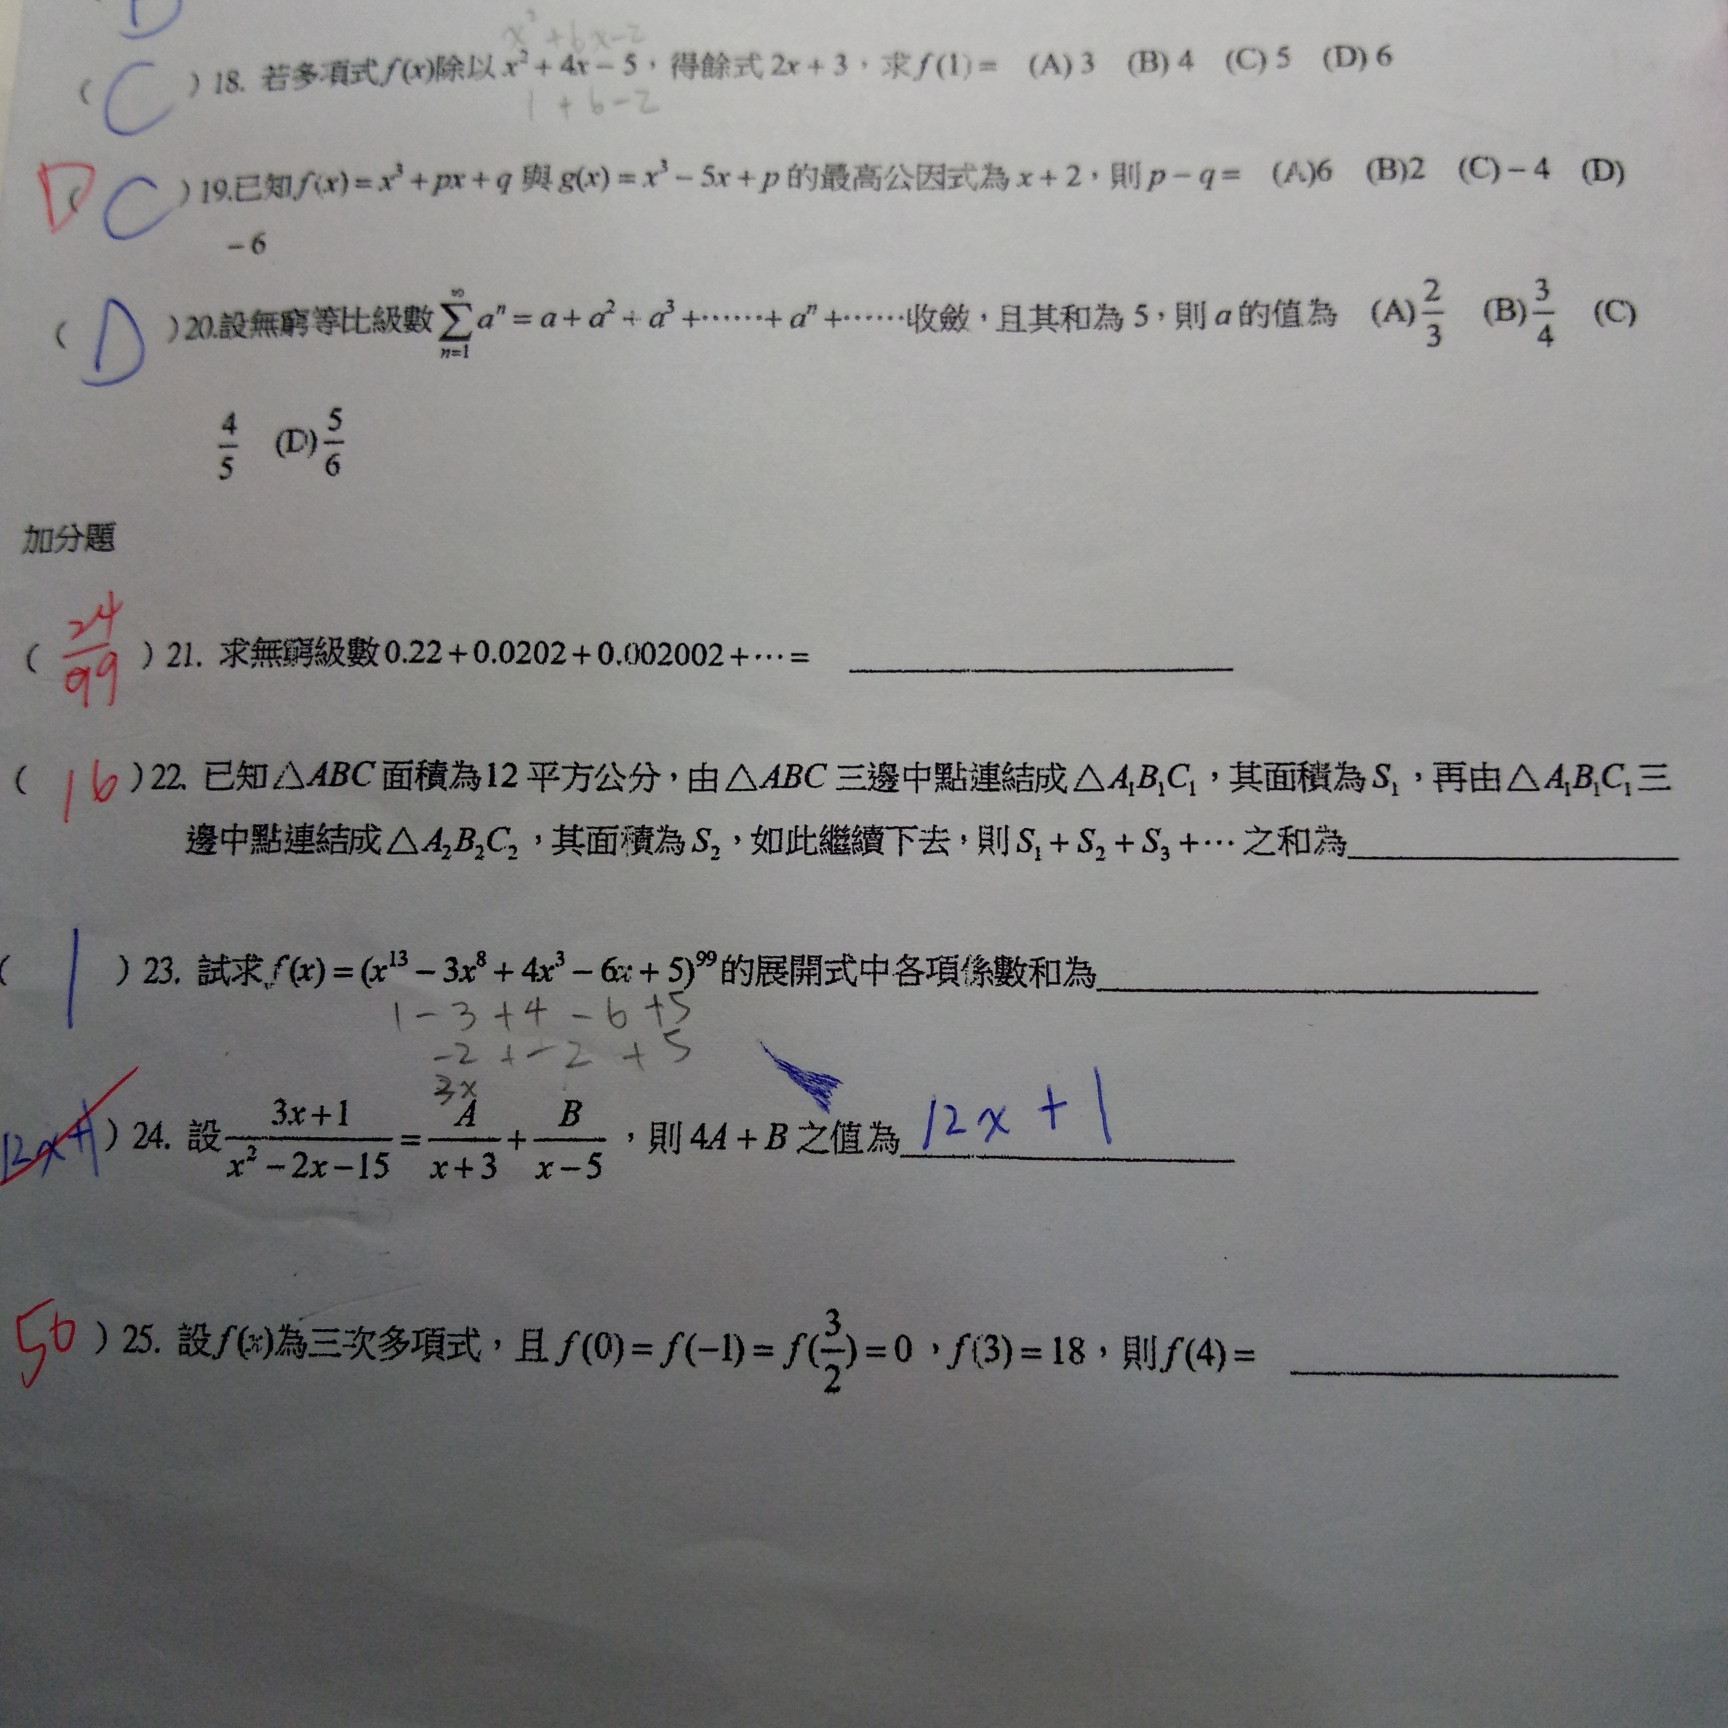 D
x² + 6x - 2
( C ) 18. 若多項式 f(x)除以 x² + 4x - 5，得餘式 2x + 3，求 f(1) = (A) 3 (B) 4 (C) 5 (D) 6
1 + 6 - 2
D ( C ) 19.已知 f(x) = x³ + px + q 與 g(x) = x³ - 5x + p 的最高公因式為 x + 2，則 p - q = (A)6 (B)2 (C) - 4 (D)
- 6
( D ) 20.設無窮等比級數 ∑_{n=1}^{∞} aⁿ = a + a² + a³ + ⋯⋯ + aⁿ + ⋯⋯ 收斂，且其和為 5，則 a 的值為 (A) 2/3 (B) 3/4 (C)
4/5 (D) 5/6
加分題
( 24/99 ) 21. 求無窮級數 0.22 + 0.0202 + 0.002002 + ⋯ =
( 16 ) 22. 已知 △ABC 面積為 12 平方公分，由 △ABC 三邊中點連結成 △A₁B₁C₁，其面積為 S₁，再由 △A₁B₁C₁ 三
邊中點連結成 △A₂B₂C₂，其面積為 S₂，如此繼續下去，則 S₁ + S₂ + S₃ + ⋯ 之和為
( 1 ) 23. 試求 f(x) = (x¹³ - 3x⁸ + 4x³ - 6x + 5)⁹⁹ 的展開式中各項係數和為
1 - 3 + 4 - 6 + 5
-2 + -2 + 5
3x
12x+1 ) 24. 設 (3x+1)/(x² - 2x - 15) = A/(x+3) + B/(x-5)，則 4A + B 之值為 12x + 1
50 ) 25. 設 f(x)為三次多項式，且 f(0) = f(-1) = f(3/2) = 0，f(3) = 18，則 f(4) =